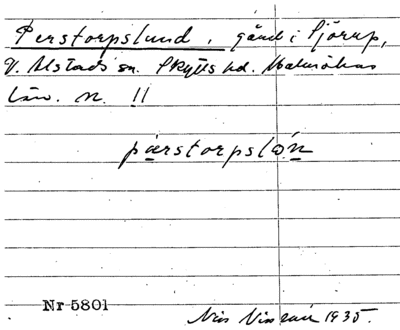 Perstorpslund, gård i Sjörup,
V. Alstads sn. Skytts hd. Malmöhus
län. n. 11
pærstorpslön
Nr 5801
Nils 1935.